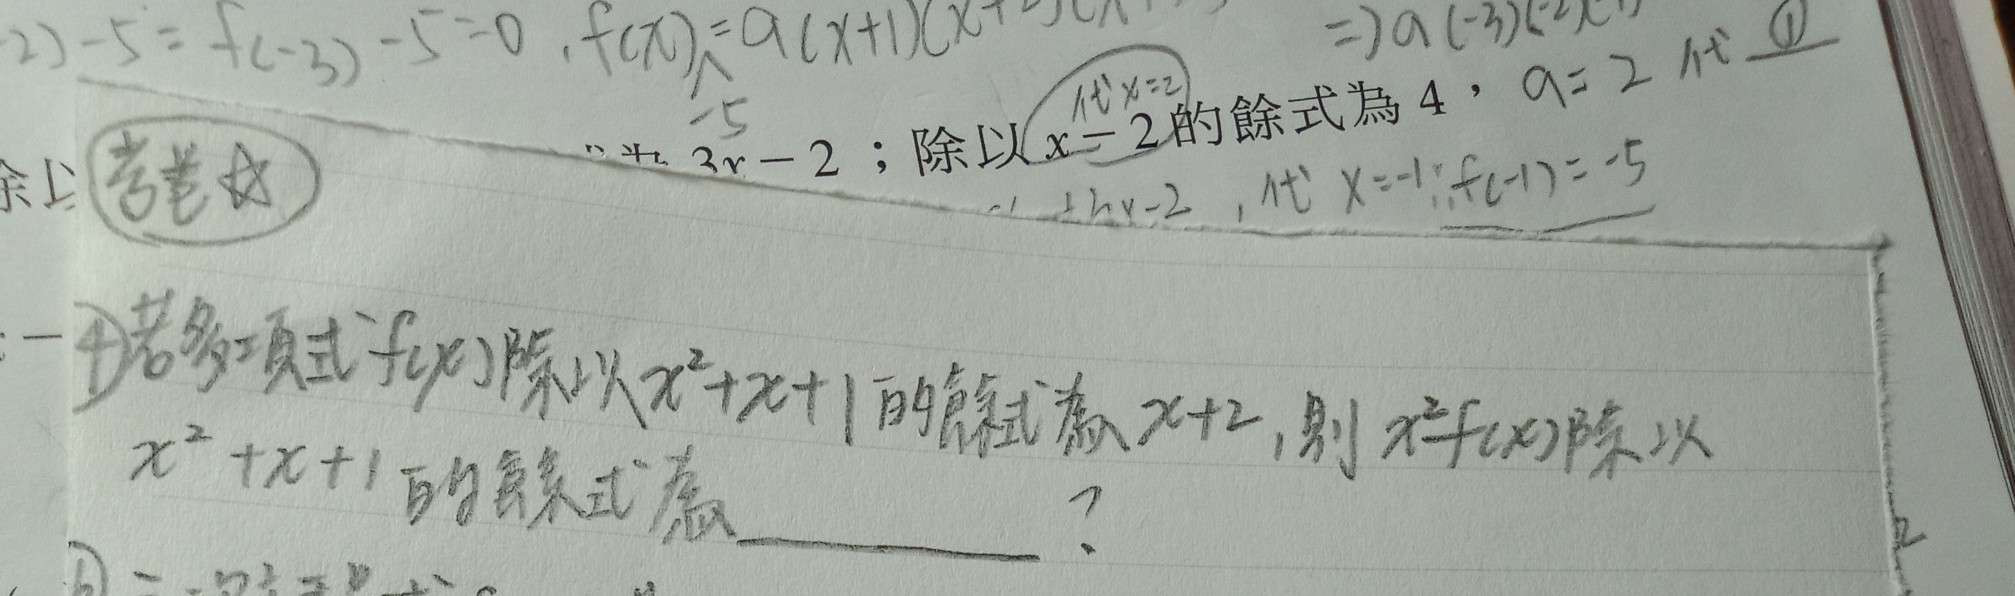 2)-5=f(-3)-5=0,f(x)=a(x+1)(x+2)(x
-5
=)a(-3)(-2)(-1)
代x=2
3x-2;除以x-2的餘式為4,a=2代①
x-2,代x=-1∴f(-1)=-5
考卷☆
④若多項式f(x)除以x²+x+1的餘式為x+2,則x²f(x)除以
x²+x+1的餘式為______?